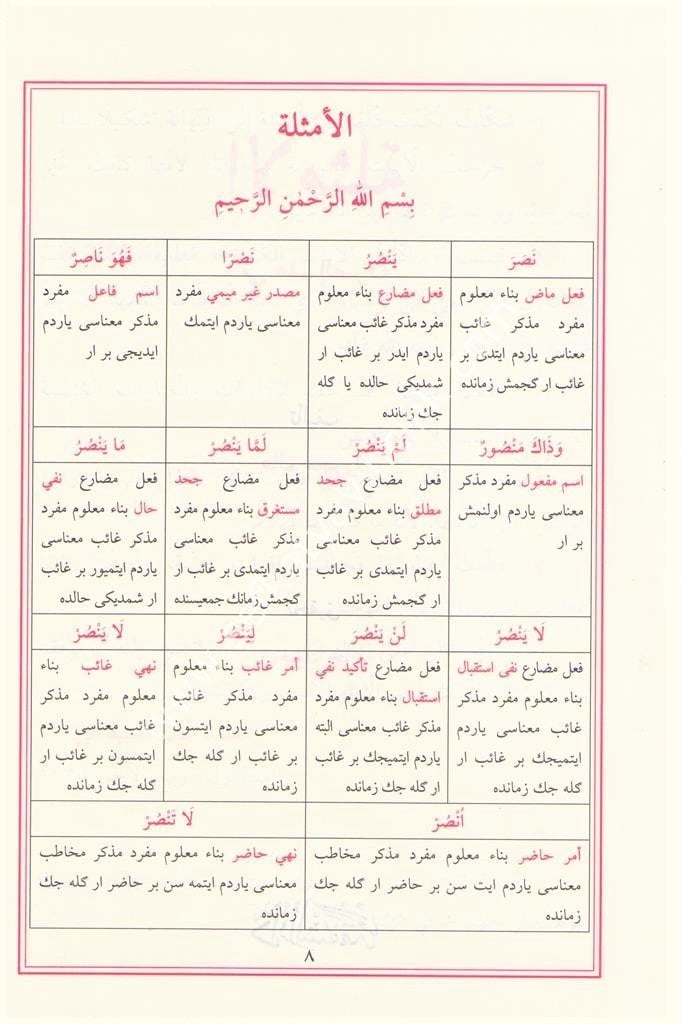 الأمثلة
بِسْمِ اللهِ الرَّحْمٰنِ الرَّحِيمِ
نَصَرَ
فعل ماض بناء معلوم
مفرد مذكر غائب
معناسى ياردم ايتدى بر
غائب ار گجمش زمانده
يَنْصُرُ
فعل مضارع بناء معلوم
مفرد مذكر غائب معناسى
ياردم ايدر بر غائب ار
شمديكى حالده يا گله
جك زمانده
نَصْرًا
مصدر غير ميمي مفرد
معناسى ياردم ايتمك
فَهُوَ نَاصِرٌ
اسم فاعل مفرد
مذكر معناسى ياردم
ايديجى بر ار
وَذَاكَ مَنْصُورٌ
اسم مفعول مفرد مذكر
معناسى ياردم اولنمش
بر ار
لَمْ يَنْصُرْ
فعل مضارع جحد
مطلق بناء معلوم مفرد
مذكر غائب معناسى
ياردم ايتمدى بر غائب
ار گجمش زمانده
لَمَّا يَنْصُرْ
فعل مضارع جحد
مستغرق بناء معلوم مفرد
مذكر غائب معناسى
ياردم ايتمدى بر غائب ار
گجمش زمانك جمعيسنده
مَا يَنْصُرُ
فعل مضارع نفي
حال بناء معلوم مفرد
مذكر غائب معناسى
ياردم ايتميور بر غائب
ار شمديكى حالده
لَا يَنْصُرُ
فعل مضارع نفى استقبال
بناء معلوم مفرد مذكر
غائب معناسى ياردم
ايتميجك بر غائب ار
گله جك زمانده
لَنْ يَنْصُرَ
فعل مضارع تأكيد نفي
استقبال بناء معلوم مفرد
مذكر غائب معناسى البته
ياردم ايتميجك بر غائب
ار گله جك زمانده
لِيَنْصُرْ
أمر غائب بناء معلوم
مفرد مذكر غائب
معناسى ياردم ايتسون
بر غائب ار گله جك
زمانده
لَا يَنْصُرْ
نهي غائب بناء
معلوم مفرد مذكر
غائب معناسى ياردم
ايتمسون بر غائب ار
گله جك زمانده
اُنْصُرْ
أمر حاضر بناء معلوم مفرد مذكر مخاطب
معناسى ياردم ايت سن بر حاضر ار گله جك
زمانده
لَا تَنْصُرْ
نهي حاضر بناء معلوم مفرد مذكر مخاطب
معناسى ياردم ايتمه سن بر حاضر ار گله جك
زمانده
٨